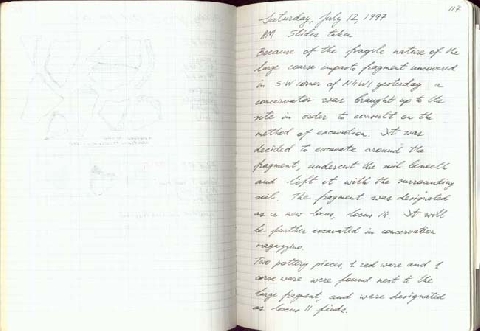 117
Saturday, July 12, 1997
AM Slides taken
Because of the fragile nature of the
large coarse impasto fragment uncovered
in SW corner of yesterday a
conservator was brought up to the
site in order to consult on the
method of excavation. It was
decided to excavate around the
fragment, undercut the soil beneath
and lift it with the surrounding
soil. The fragment was designated
as a new locus, locus 18. It will
be further excavated in conservation
magazzino.
Two pottery pieces, 1 red ware and 1
coarse ware were found next to the
large fragment, and were designated
as locus 11 finds.